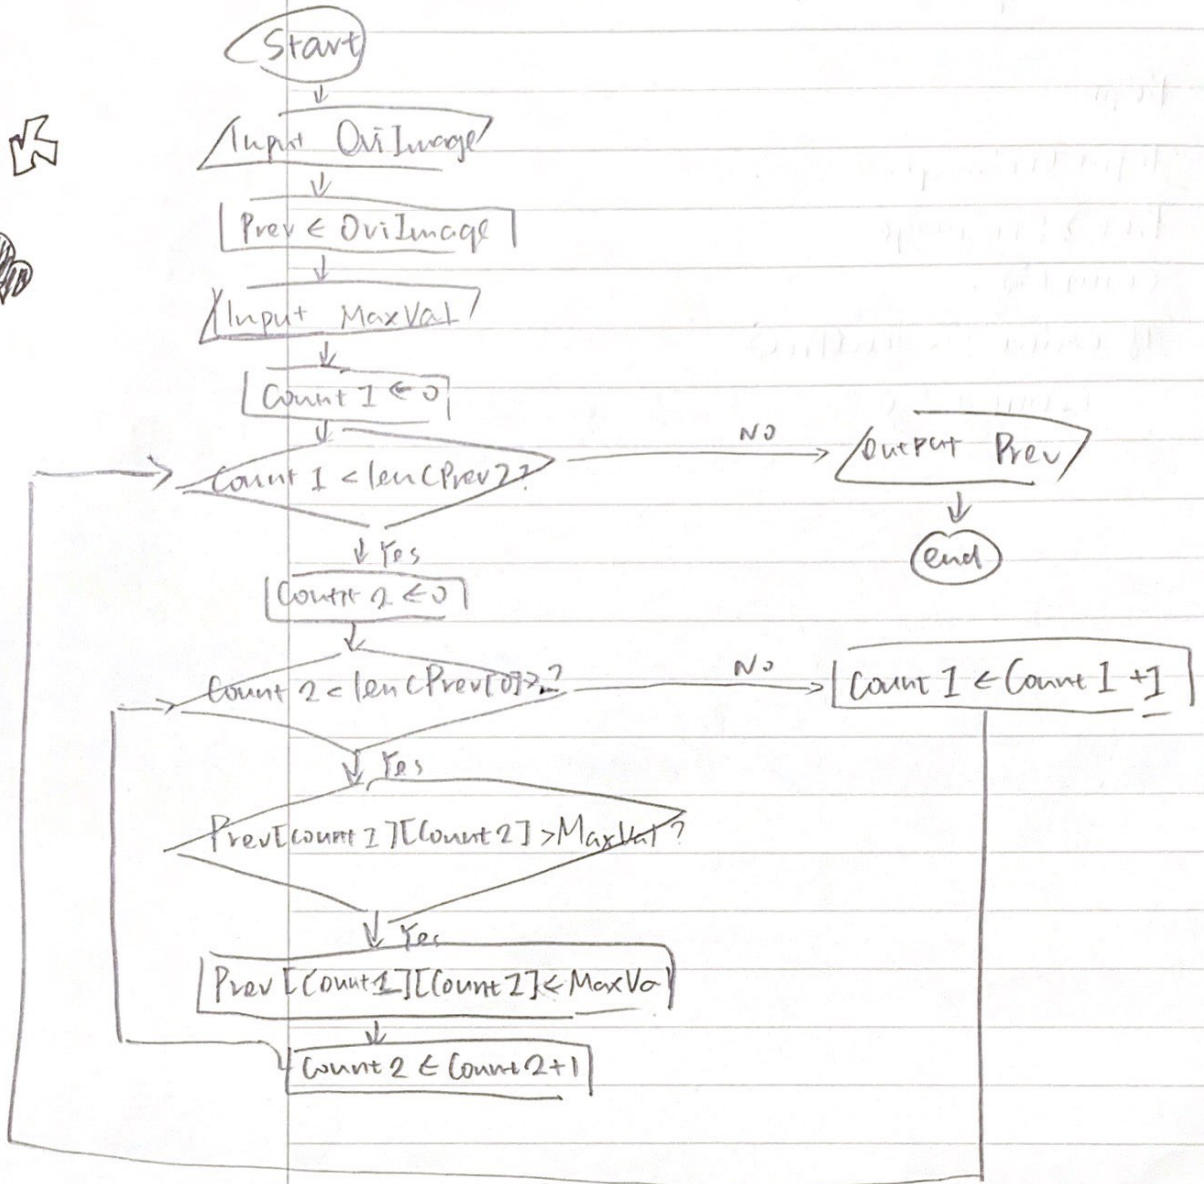 Start
Input OriImage
Prev ← OriImage
Input MaxVal
Count 1 ← 0
Count 1 < len(Prev)?
No
Output Prev
end
Yes
Count 2 ← 0
Count 2 < len(Prev[0])?
No
Count 1 ← Count 1 + 1
Yes
Prev[Count 1][Count 2] > MaxVal?
Yes
Prev[Count 1][Count 2] ← MaxVal
Count 2 ← Count 2 + 1